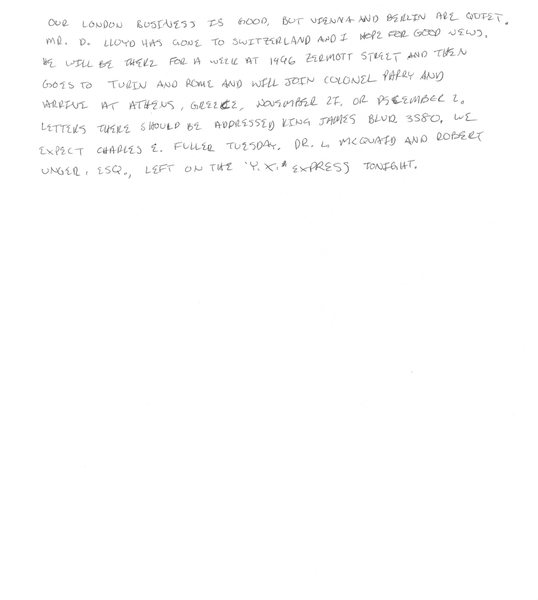 OUR LONDON BUSINESS IS GOOD, BUT VIENNA AND BERLIN ARE QUIET.
MR. D. LLOYD HAS GONE TO SWITZERLAND AND I HOPE FOR GOOD NEWS.
HE WILL BE THERE FOR A WEEK AT 1496 ZERMOTT STREET AND THEN
GOES TO TURIN AND ROME AND WILL JOIN COLONEL PARRY AND
ARRIVE AT ATHENS, GREECE, NOVEMBER 27, OR DECEMBER 2.
LETTERS THERE SHOULD BE ADDRESSED KING JAMES BLVD 3580. WE
EXPECT CHARLES E. FULLER TUESDAY. DR. L MCQUAID AND ROBERT
UNGER, ESQ., LEFT ON THE "Y.X." EXPRESS TONIGHT.